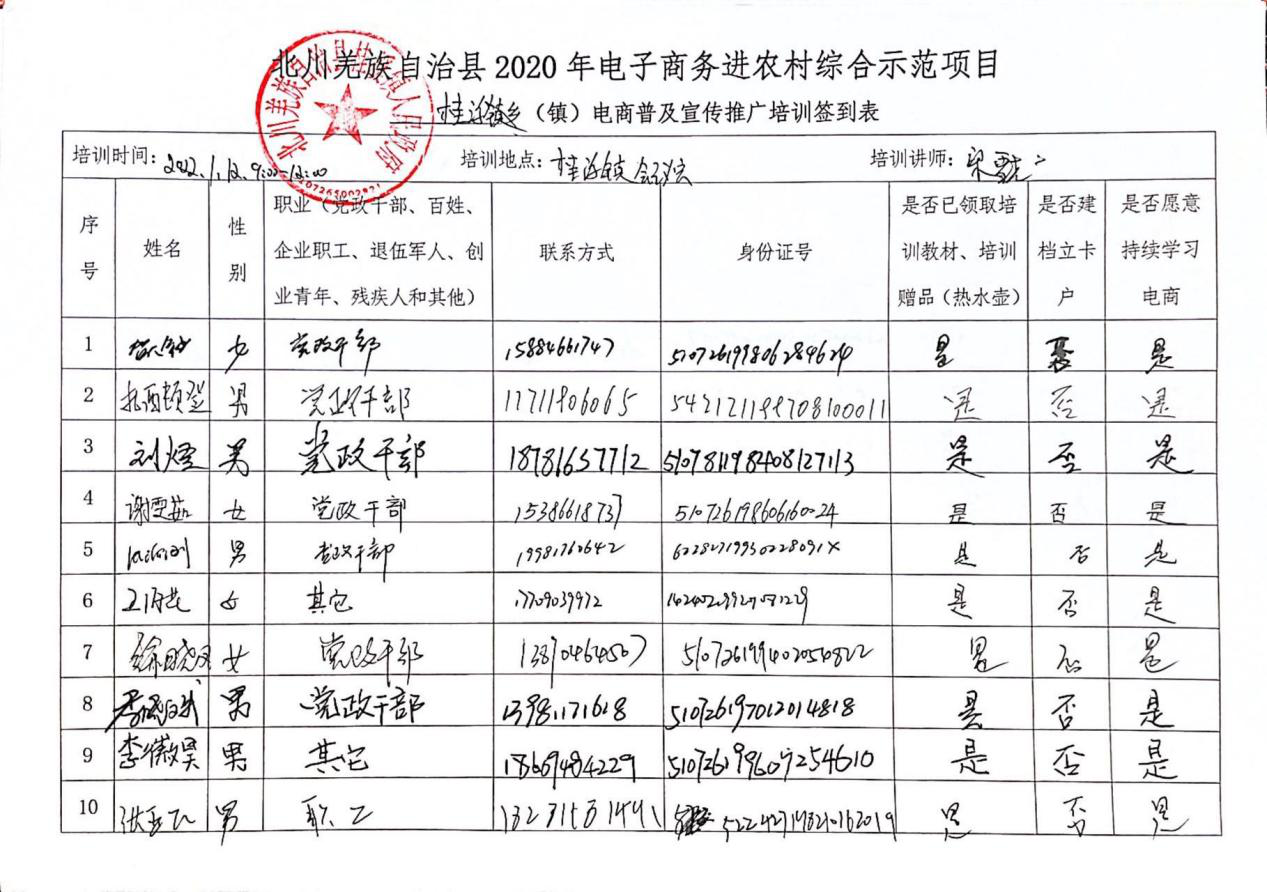 北川羌族自治县2020年电子商务进农村综合示范项目
乡（镇）电商普及宣传推广培训签到表
培训时间：2022.1.12. 9:00-12:00 培训地点：桂溪镇会议室 培训讲师：宋
序号 姓名 性别 职业（党政干部、百姓、企业职工、退伍军人、创业青年、残疾人和其他） 联系方式 身份证号 是否已领取培训教材、培训赠品（热水壶） 是否建档立卡户 是否愿意持续学习电商
1 女 党政干部 15884661747 510726199806284624 是 否 是
2 扎西顿登 男 党政干部 17711906065 542121199708100011 是 否 是
3 刘烃 男 党政干部 18781657712 510781198408127113 是 否 是
4 谢雯茹 女 党政干部 15386618737 510726198606160024 是 否 是
5 男 党政干部 19981760642 62282719930228091X 是 否 是
6 女 其它 17709039972 是 否 是
7 女 党政干部 13890464507 510726199402054822 是 否 是
8 男 党政干部 13981171618 510726197012014818 是 否 是
9 李微昊 男 其它 18669484229 510726199609254610 是 否 是
10 男 职工 522427198210162019 是 否 是